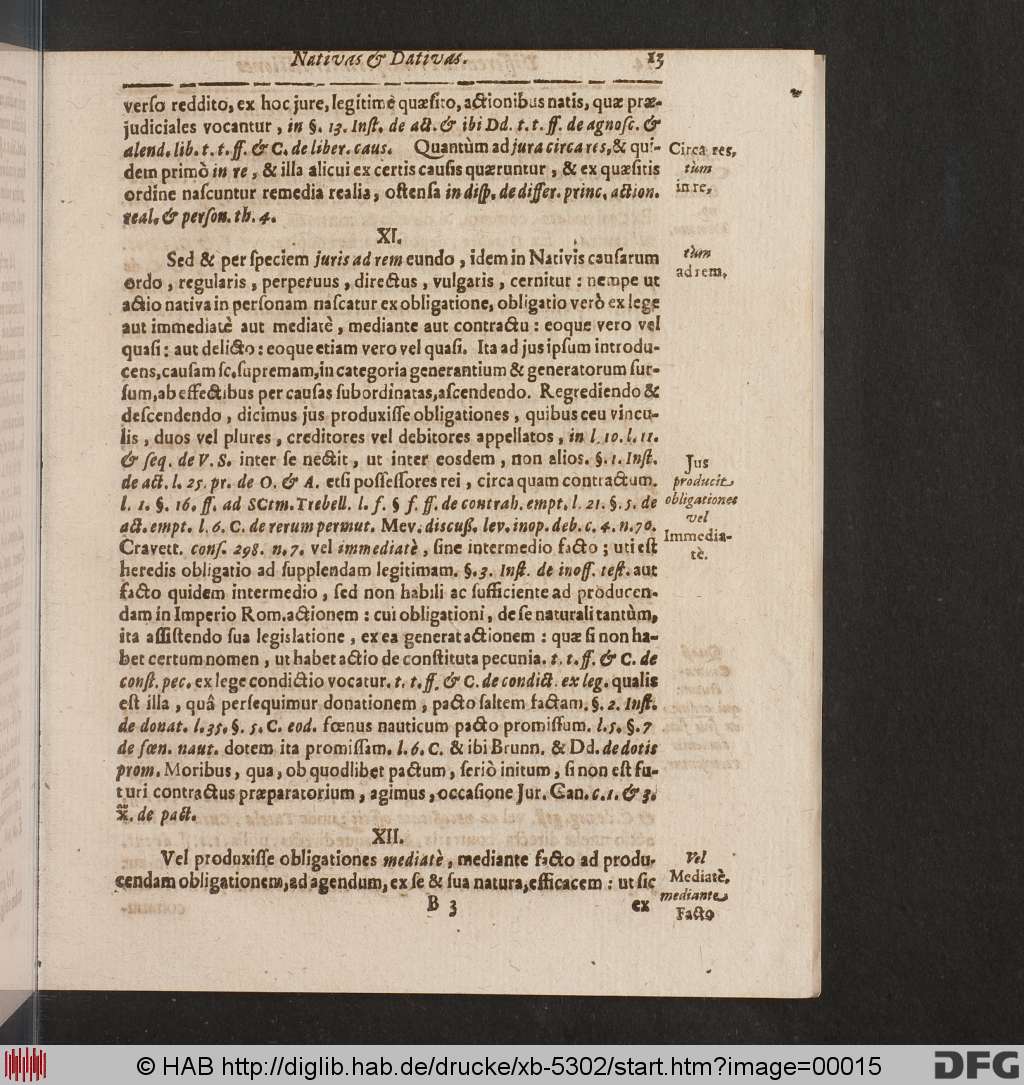 Nativas & Dativas. 13
verſo reddito, ex hoc jure, legitimè quæſito, actionibus natis, quæ præ-
judiciales vocantur, in §. 13. Inſt. de act. & ibi Dd. t. t. ff. de agnoſc. &
alend. lib. t. t. ff. & C. de liber. caus. Quantùm ad jura circa res, & qui-
dem primò in re, & illa alicui ex certis cauſis quæruntur, & ex quæſitis
ordine naſcuntur remedia realia, oſtenſa in diſp. de differ. princ. action.
real. & perſon. th. 4.
Circa res,
tùm
in re,
XI.
Sed & per ſpeciem juris ad rem eundo, idem in Nativis cauſarum
ordo, regularis, perpetuus, directus, vulgaris, cernitur: nempe ut
actio nativa in perſonam naſcatur ex obligatione, obligatio verò ex lege
aut immediatè aut mediatè, mediante aut contractu: eoque vero vel
quaſi: aut delicto: eoque etiam vero vel quaſi. Ita ad jus ipſum introdu-
cens, cauſam ſc. ſupremam, in categoria generantium & generatorum ſur-
ſum, ab effectibus per cauſas ſubordinatas, aſcendendo. Regrediendo &
deſcendendo, dicimus jus produxiſſe obligationes, quibus ceu vincu-
lis, duos vel plures, creditores vel debitores appellatos, in l. 10. l. 11.
& ſeq. de V. S. inter ſe nectit, ut inter eosdem, non alios. §. 1. Inſt.
de act. l. 25. pr. de O. & A. etſi poſſeſſores rei, circa quam contractum.
l. 1. §. 16. ff. ad SCtm. Trebell. l. f. § f. ff. de contrah. empt. l. 21. §. 5. de
act. empt. l. 6. C. de rerum permut. Mev. discuß. lev. inop. deb. c. 4. n. 70.
Cravett. conſ. 298. n. 7. vel immediatè, ſine intermedio facto; uti eſt
heredis obligatio ad ſupplendam legitimam. §. 3. Inſt. de inoff. teſt. aut
facto quidem intermedio, ſed non habili ac ſufficiente ad producen-
dam in Imperio Rom. actionem: cui obligationi, de ſe naturali tantùm,
ita aſſiſtendo ſua legislatione, ex ea generat actionem: quæ ſi non ha-
bet certum nomen, ut habet actio de conſtituta pecunia. t. t. ff. & C. de
conſt. pec. ex lege condictio vocatur. t. t. ff. & C. de condict. ex leg. qualis
eſt illa, quâ perſequimur donationem, pacto ſaltem factam. §. 2. Inſt.
de donat. l. 35. §. 5. C. eod. fœnus nauticum pacto promiſſum. l. 5. §. 7
de fœn. naut. dotem ita promiſſam. l. 6. C. & ibi Brunn. & Dd. de dotis
prom. Moribus, qua, ob quodlibet pactum, ſeriò initum, ſi non eſt fu-
turi contractus præparatorium, agimus, occaſione Jur. Can. c. 1. & 3.
X. de pact.
tùm
ad rem,
Jus
producit
obligationes
vel
Immedia-
tè.
XII.
Vel produxiſſe obligationes mediatè, mediante facto ad produ-
cendam obligationem, ad agendum, ex ſe & ſua natura, efficacem: ut ſic
Vel
Mediatè,
mediante
Facto
B 3 ex
© HAB http://diglib.hab.de/drucke/xb-5302/start.htm?image=00015
DFG